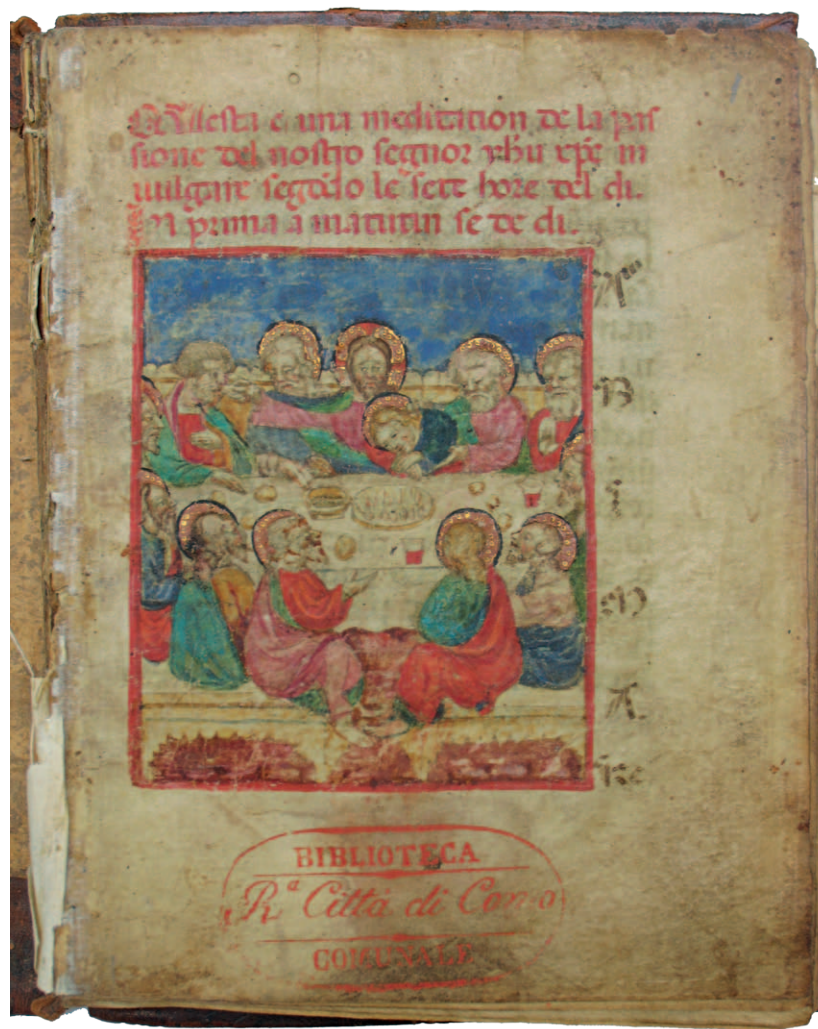 Questa e una meditation de la pas
sione del nostro segnor yhu xpe in
uulgare segōdo le sete hore del di.
In prima a matutin se de di.
BIBLIOTECA
Rª Città di
COMUNALE